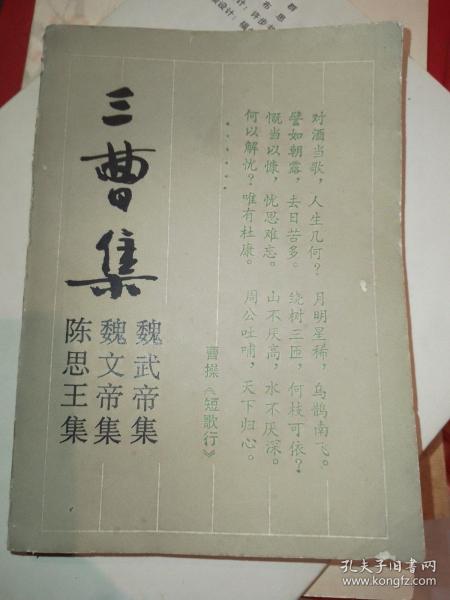 三曹集
魏武帝集
魏文帝集
陈思王集
对酒当歌，人生几何？
譬如朝露，去日苦多。
慨当以慷，忧思难忘。
何以解忧？唯有杜康。
……
月明星稀，乌鹊南飞。
绕树三匝，何枝可依？
山不厌高，水不厌深。
周公吐哺，天下归心。
曹操《短歌行》
孔夫子旧书网
www.kongfz.com